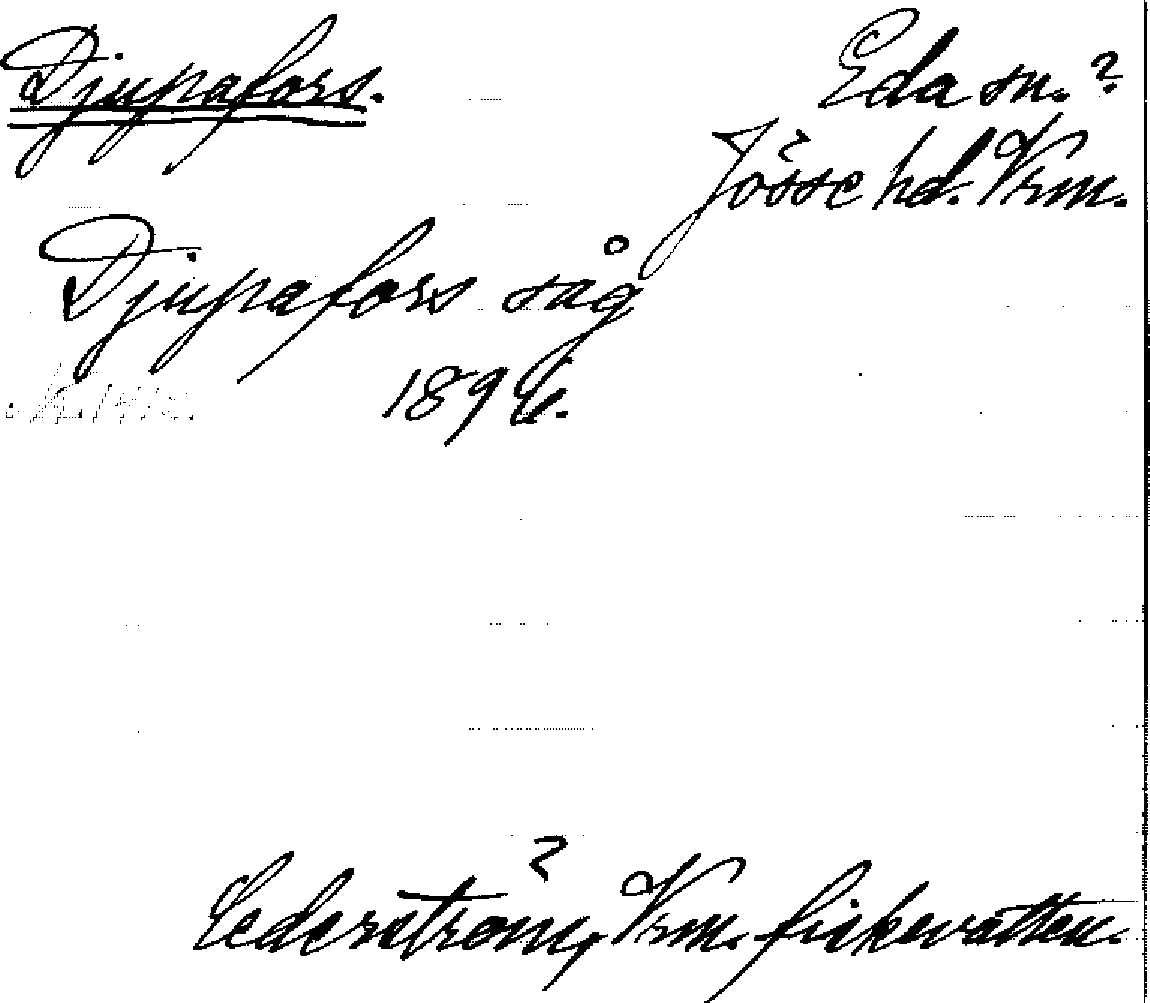 Djupafors.
Eda sn.?
Jösse hd. Vrm.
Djupafors såg
1896.
Cederström, Vrm. fiskevatten.